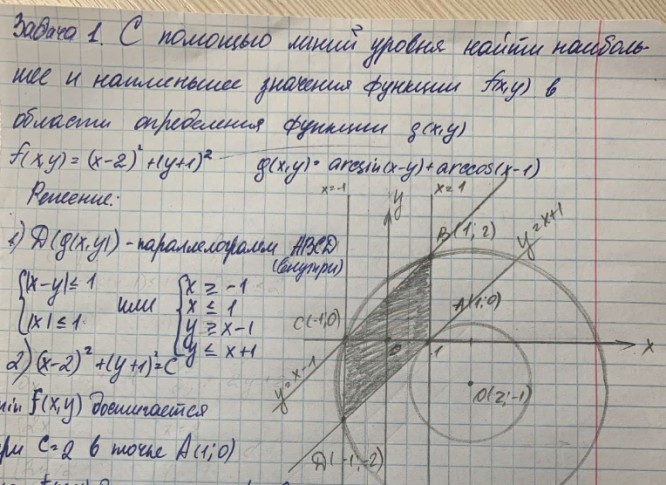 Задача 1. С помощью линий уровня найти наиболь-
шее и наименьшее значения функции f(x,y) в
области определения функции g(x,y)
f(x,y) = (x-2)² + (y+1)² g(x,y) = arcsin(x-y) + arccos(x-1)
Решение:
1) D(g(x,y)) - параллелограмм ABCD
(внутри)
{|x-y| ≤ 1
{|x| ≤ 1
или
{x ≥ -1
{x ≤ 1
{y ≥ x-1
{y ≤ x+1
2) (x-2)² + (y+1)² = C
min f(x,y) достигается
при C=2 в точке A(1;0)
x=-1
x=1
y
B(1;2)
y=x+1
A(1;0)
C(-1;0)
0
1
x
y=x-1
O(2;-1)
D(-1;-2)